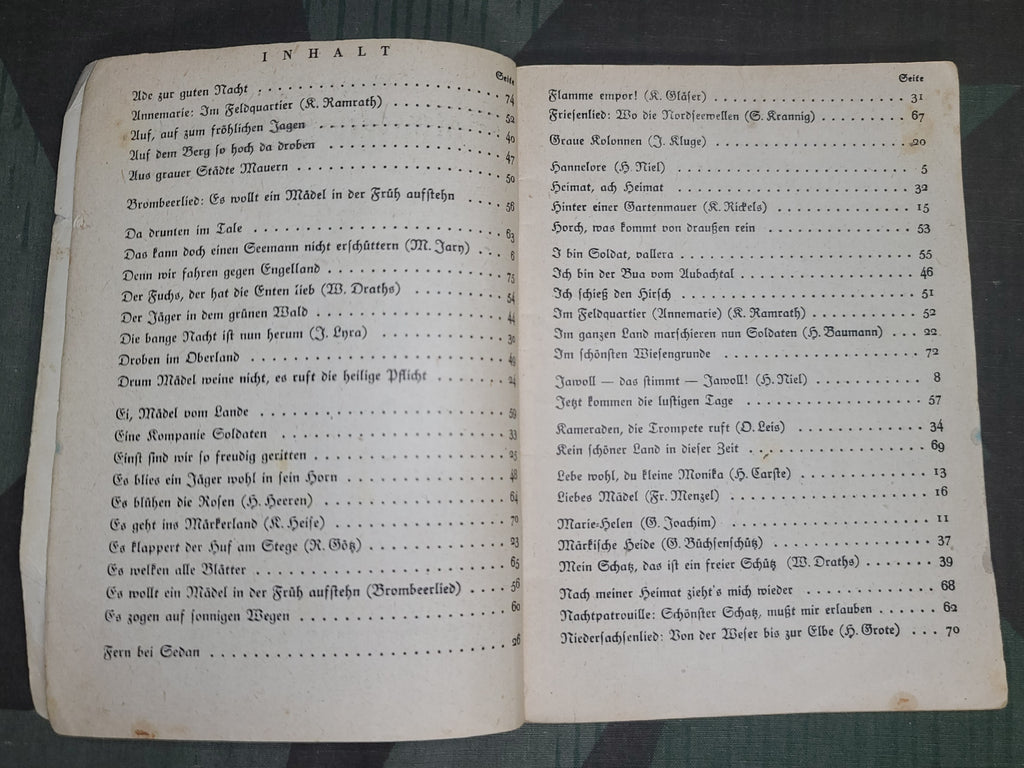 INHALT
Seite
Ade zur guten Nacht . . . . . . . . . . . . . . . . . . . 74
Annemarie: Im Feldquartier (K. Ramrath) . . . . . . . . . 52
Auf, auf zum fröhlichen Jagen . . . . . . . . . . . . . . 40
Auf dem Berg so hoch da droben . . . . . . . . . . . . . 47
Aus grauer Städte Mauern . . . . . . . . . . . . . . . . 50
Brombeerlied: Es wollt ein Mädel in der Früh aufstehn . . . . 56
Da drunten im Tale . . . . . . . . . . . . . . . . . . . 63
Das kann doch einen Seemann nicht erschüttern (M. Jary) . . . 6
Denn wir fahren gegen Engelland . . . . . . . . . . . . . 75
Der Fuchs, der hat die Enten lieb (W. Draths) . . . . . . . 54
Der Jäger in dem grünen Wald . . . . . . . . . . . . . . 44
Die bange Nacht ist nun herum (J. Lyra) . . . . . . . . . . 30
Droben im Oberland . . . . . . . . . . . . . . . . . . . 49
Drum Mädel weine nicht, es ruft die heilige Pflicht . . . . . . 24
Ei, Mädel vom Lande . . . . . . . . . . . . . . . . . . 59
Eine Kompanie Soldaten . . . . . . . . . . . . . . . . . 33
Einst sind wir so freudig geritten . . . . . . . . . . . . . 25
Es blies ein Jäger wohl in sein Horn . . . . . . . . . . . . 48
Es blühen die Rosen (H. Heeren) . . . . . . . . . . . . . 64
Es geht ins Märkerland (K. Heise) . . . . . . . . . . . . . 70
Es klappert der Huf am Stege (R. Götz) . . . . . . . . . . 23
Es welken alle Blätter . . . . . . . . . . . . . . . . . . 65
Es wollt ein Mädel in der Früh aufstehn (Brombeerlied) . . . . 56
Es zogen auf sonnigen Wegen . . . . . . . . . . . . . . . 60
Fern bei Sedan . . . . . . . . . . . . . . . . . . . . . 26
Seite
Flamme empor! (K. Gläser) . . . . . . . . . . . . . . . . 31
Friesenlied: Wo die Nordseewellen (S. Krannig) . . . . . . . 67
Graue Kolonnen (J. Kluge) . . . . . . . . . . . . . . . . 20
Hannelore (H. Niel) . . . . . . . . . . . . . . . . . . . 5
Heimat, ach Heimat . . . . . . . . . . . . . . . . . . . 32
Hinter einer Gartenmauer (K. Rickels) . . . . . . . . . . . 15
Horch, was kommt von draußen rein . . . . . . . . . . . . 53
I bin Soldat, vallera . . . . . . . . . . . . . . . . . . . 55
Ich bin der Bua vom Aubachtal . . . . . . . . . . . . . . 46
Ich schieß den Hirsch . . . . . . . . . . . . . . . . . . 51
Im Feldquartier (Annemarie) (K. Ramrath) . . . . . . . . . 52
Im ganzen Land marschieren nun Soldaten (H. Baumann) . . . 22
Im schönsten Wiesengrunde . . . . . . . . . . . . . . . . 72
Jawoll — das stimmt — Jawoll! (H. Niel) . . . . . . . . . . 8
Jetzt kommen die lustigen Tage . . . . . . . . . . . . . . 57
Kameraden, die Trompete ruft (O. Leis) . . . . . . . . . . . 34
Kein schöner Land in dieser Zeit . . . . . . . . . . . . . . 69
Lebe wohl, du kleine Monika (H. Carste) . . . . . . . . . . 13
Liebes Mädel (Fr. Menzel) . . . . . . . . . . . . . . . . 16
Marie-Helen (G. Joachim) . . . . . . . . . . . . . . . . 11
Märkische Heide (G. Büchsenschütz) . . . . . . . . . . . . 37
Mein Schatz, das ist ein freier Schütz (W. Draths) . . . . . . 39
Nach meiner Heimat zieht's mich wieder . . . . . . . . . . 68
Nachtpatrouille: Schönster Schatz, mußt mir erlauben . . . . . 62
Niedersachsenlied: Von der Weser bis zur Elbe (H. Grote) . . . 70